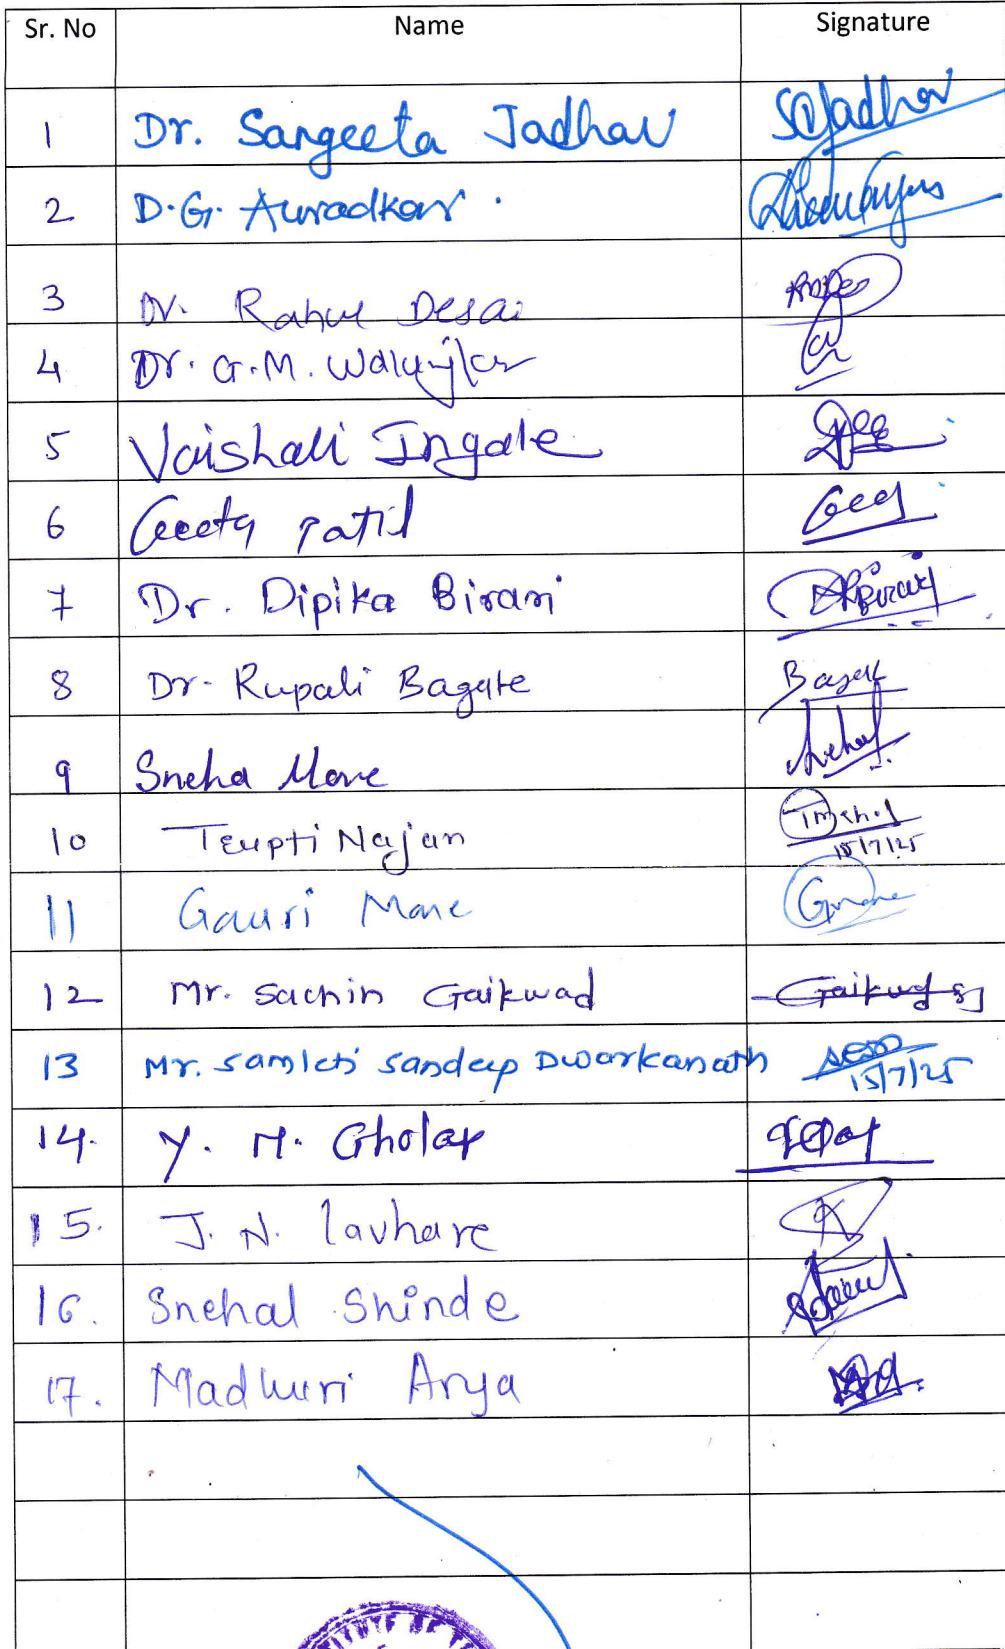 Sr. No Name Signature
1 Dr. Sangeeta Jadhav SJadhav
2 D.G. Auradkar.
3 Dr. Rahul Desai
4 Dr. G.M. Walunjkar
5 Vaishali Ingale
6 Geeta Patil Geeg
7 Dr. Dipika Birari DRBirari
8 Dr. Rupali Bagate Bagate
9 Sneha More Sneha
10 Trupti Najan
15/7/25
11 Gauri Mane Gmane
12 Mr. Sachin Gaikwad Gaikwad
13 Mr. Samleti Sandeep Dwarkanath
15/7/25
14. Y. M. Gholap
15. J. N. lavhare
16. Snehal Shinde
17. Madhuri Arya